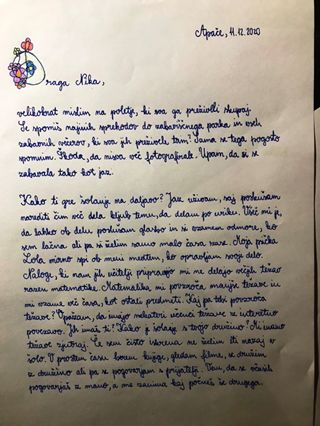 Apače, 11.12.2020
Draga Nika,
velikokrat mislim na poletje, ki sva ga preživeli skupaj.
Se spomniš najinih sprehodov do zabaviščnega parka in vseh
zabavnih večerov, ki sva jih preživele tam? Sama se tega pogosto
spomnim. Škoda, da nisva več fotografirale. Upam, da si se
zabavala tako kot jaz.
Kako ti gre šolanje na daljavo? Jaz uživam, saj poskušam
narediti čim več dela kljub temu, da delam po urniku. Všeč mi je,
da lahko ob delu poslušam glasbo in si vzamem odmore, ko
sem lačna ali pa si želim samo malo časa zase. Moja psička
Lola mirno spi ob meni medtem, ko opravljam svoje delo.
Naloge, ki nam jih učitelji pripravijo mi ne delajo večjih težav
razen matematike. Matematika mi povzroča manjše težave in
mi vzame več časa, kot ostali predmeti. Kaj pa tebi povzroča
težave? Opažam, da imajo nekateri učenci težave z internetno
povezavo. Jih imaš ti? Kako je šolanje s tvojo družino? Mi imamo
težave zjutraj. Če sem čisto iskrena ne želim iti nazaj v
šolo. V prostem času berem knjige, gledam filme, se družim
z družino ali pa se pogovarjam s prijatelji. Vem, da se včasih
pogovarjaš z mano, a me zanima kaj počneš še drugega.